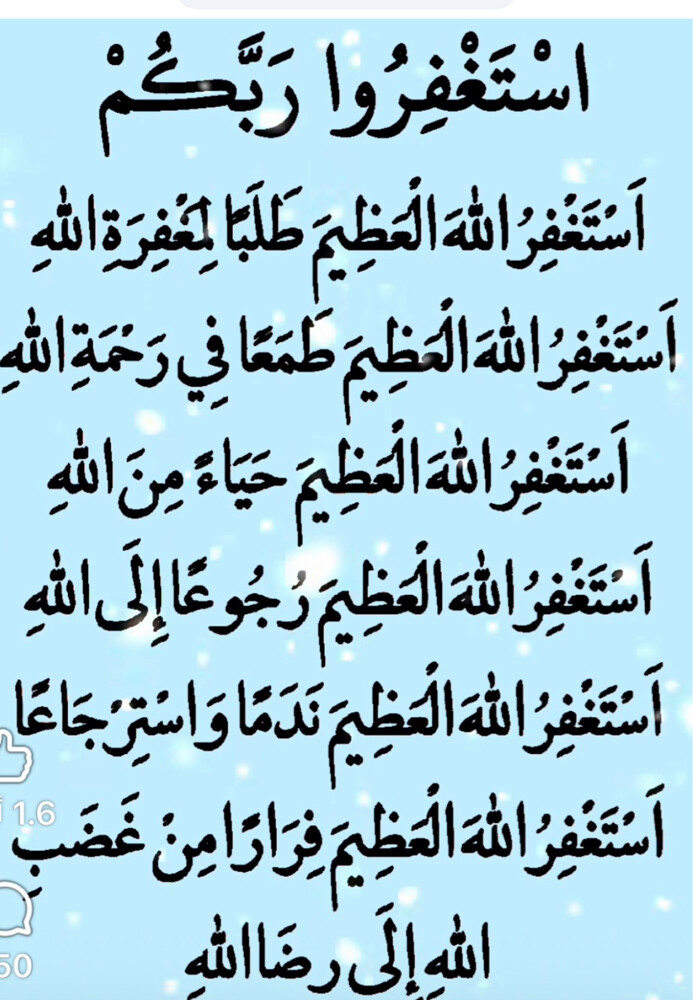 اسْتَغْفِرُوا رَبَّكُمْ
اَسْتَغْفِرُ اللهَ الْعَظِيمَ طَلَبًا لِمَغْفِرَةِ اللهِ
اَسْتَغْفِرُ اللهَ الْعَظِيمَ طَمَعًا فِي رَحْمَةِ اللهِ
اَسْتَغْفِرُ اللهَ الْعَظِيمَ حَيَاءً مِنَ اللهِ
اَسْتَغْفِرُ اللهَ الْعَظِيمَ رُجُوعًا إِلَى اللهِ
اَسْتَغْفِرُ اللهَ الْعَظِيمَ نَدَمًا وَاسْتِرْجَاعًا
اَسْتَغْفِرُ اللهَ الْعَظِيمَ فِرَارًا مِنْ غَضَبِ
اللهِ إِلَى رِضَا اللهِ
1.6
50